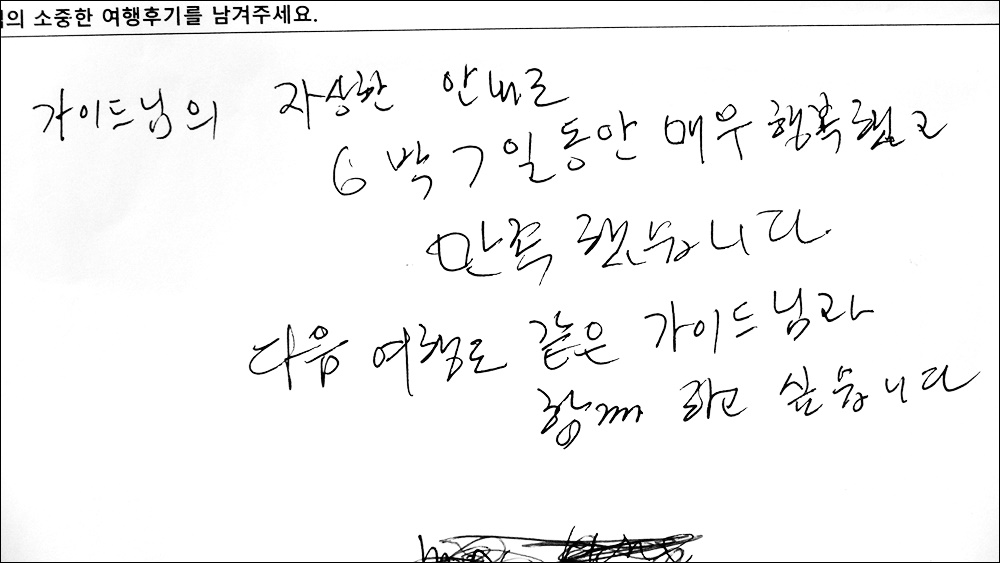 의 소중한 여행후기를 남겨주세요.
가이드님의 자상한 안내로
6박 7일동안 매우 행복했고
만족했습니다.
다음 여행도 같은 가이드님과
함께 하고 싶습니다